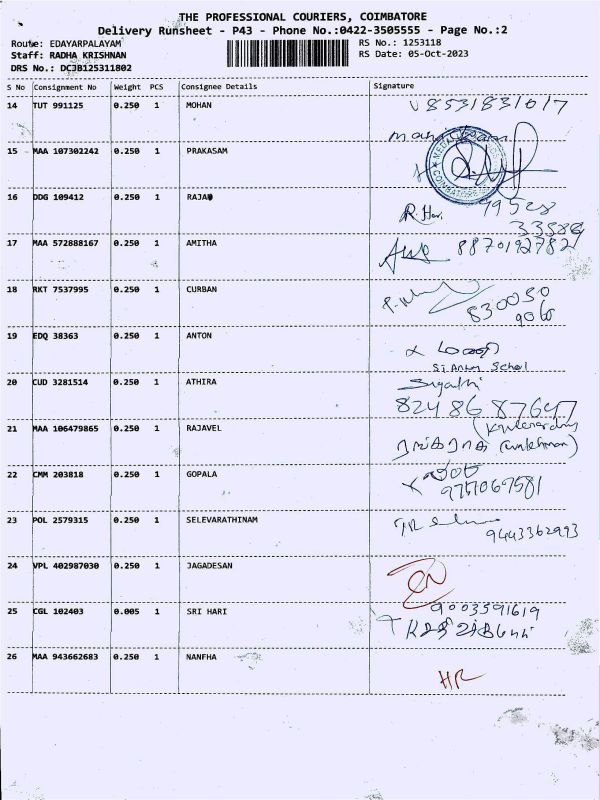 THE PROFESSIONAL COURIERS, COIMBATORE
Delivery Runsheet - P43 - Phone No.:0422-3505555 - Page No.:2
Route: EDAYARPALAYAM RS No.: 1253118
Staff: RADHA KRISHNAN RS Date: 05-Oct-2023
DRS No.: DCJB125311802
S No Consignment No Weight PCS Consignee Details Signature
14 TUT 991125 0.250 1 MOHAN 8531831017
15 MAA 107302242 0.250 1 PRAKASAM
16 DDG 109412 0.250 1 RAJAN
17 MAA 572888167 0.250 1 AMITHA 8870192782
18 RKT 7537995 0.250 1 CURBAN 830050
9060
19 EDQ 38363 0.250 1 ANTON
St Antony School
20 CUD 3281514 0.250 1 ATHIRA
8248687647
21 MAA 106479865 0.250 1 RAJAVEL
22 CMM 203818 0.250 1 GOPALA
9751067581
23 POL 2579315 0.250 1 SELEVARATHINAM
9443362993
24 VPL 402987030 0.250 1 JAGADESAN
25 CGL 102403 0.005 1 SRI HARI 9003591619
26 MAA 943662683 0.250 1 NANFHA
HR